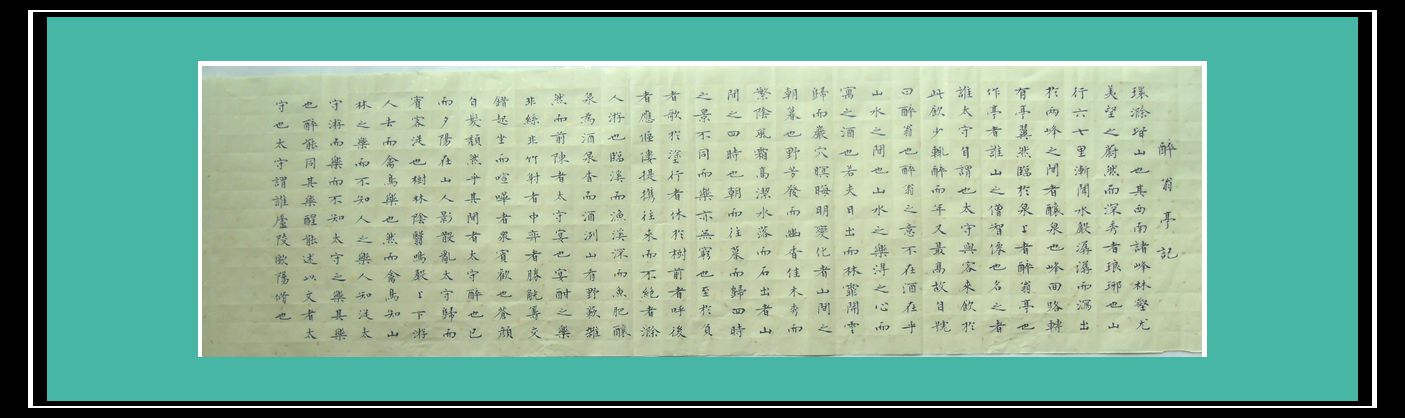 醉翁亭記
環滁皆山也其西南諸峰林壑尤
美望之蔚然而深秀者琅琊也山
行六七里漸聞水聲潺潺而瀉出
於兩峰之間者釀泉也峰回路轉
有亭翼然臨於泉上者醉翁亭也
作亭者誰山之僧智僊也名之者
誰太守自謂也太守與客來飲於
此飲少輒醉而年又最高故自號
曰醉翁也醉翁之意不在酒在乎
山水之間也山水之樂得之心而
寓之酒也若夫日出而林霏開雲
歸而巖穴暝晦明變化者山間之
朝暮也野芳發而幽香佳木秀而
繁陰風霜高潔水落而石出者山
間之四時也朝而往暮而歸四時
之景不同而樂亦無窮也至於負
者歌於塗行者休於樹前者呼後
者應傴僂提攜往來而不絕者滁
人游也臨溪而漁溪深而魚肥釀
泉為酒泉香而酒洌山有野蔌雜
然而前陳者太守宴也宴酣之樂
非絲非竹射者中弈者勝觥籌交
錯起坐而喧嘩者眾賓歡也蒼顏
白髮頹然乎其間者太守醉也已
而夕陽在山人影散亂太守歸而
賓客從也樹林陰翳鳴聲上下游
人去而禽鳥樂也然而禽鳥知山
林之樂而不知人之樂人知從太
守游而樂而不知太守之樂其樂
也醉能同其樂醒能述以文者太
守也太守謂誰廬陵歐陽脩也